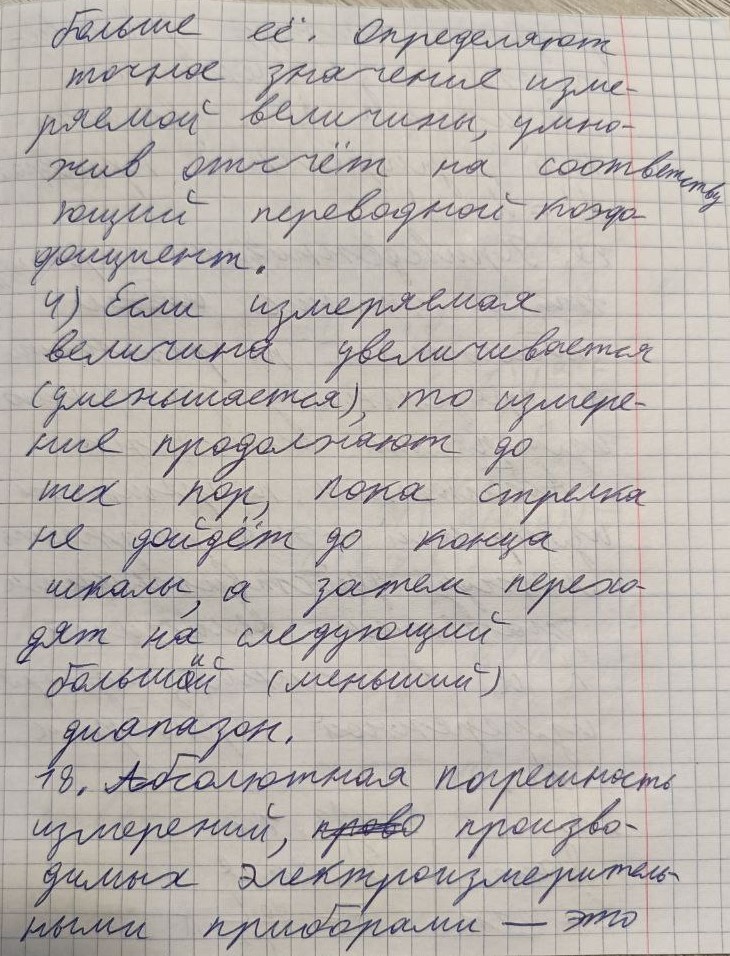 больше её. Определяют
точное значение изме-
ряемой величины, умно-
жив отсчёт на соответству
ющий переводной коэф-
фициент.
4) Если измеряемая
величина увеличивается
(уменьшается), то измере-
ние продолжают до
тех пор, пока стрелка
не дойдёт до конца
шкалы, а затем перехо-
дят на следующий
больший (меньший)
диапазон.
18. Абсолютная погрешность
измерений, произво-
димых электроизмеритель-
ными приборами — это